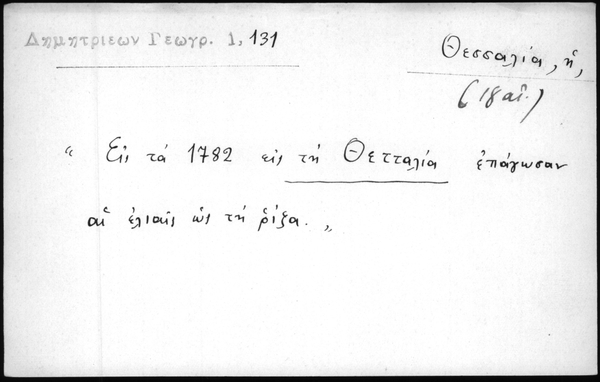 Δημητριεων Γεωγρ. 1, 131
Θεσσαλία, ἡ,
(18 αἰ.)
“ Εἰς τὰ 1782 εἰς τὴ Θετταλία ἐπάγωσαν
αἱ ἐλιαῖς ὡς τὴ ῥίζα. „